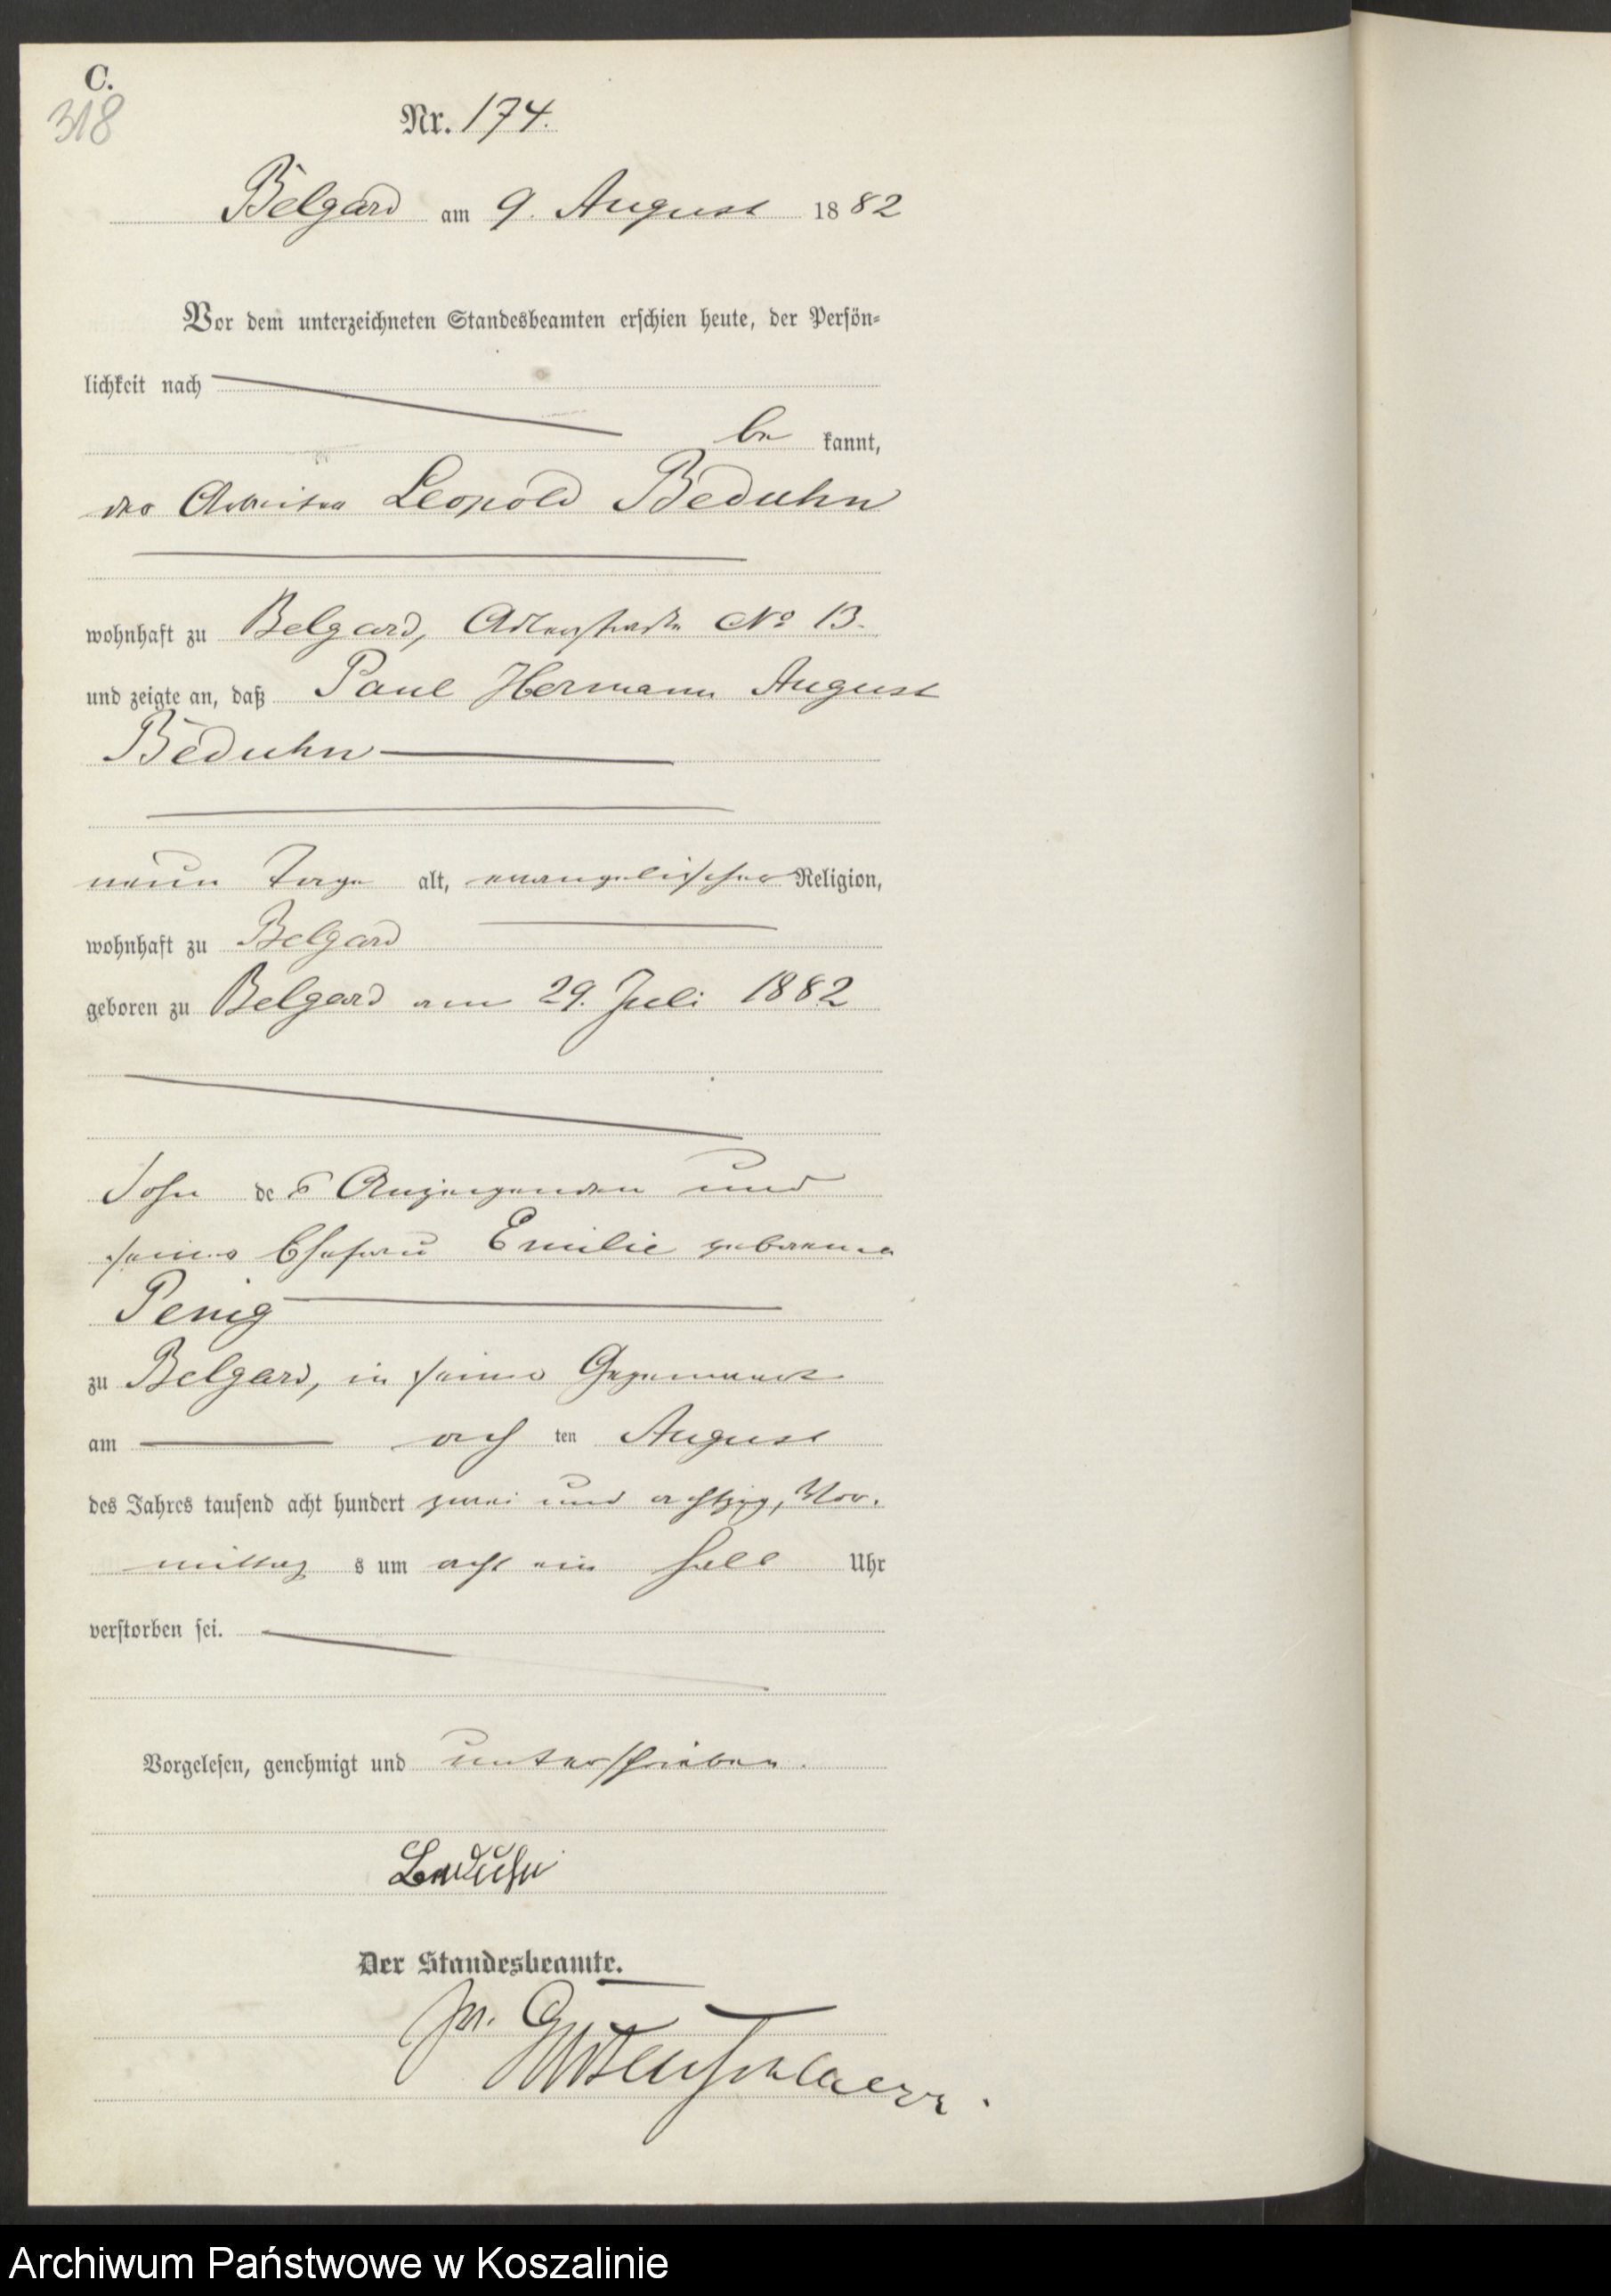 C.
318
Nr. 174.
Belgard am 9. August 1882
Vor dem unterzeichneten Standesbeamten erschien heute, der Persön-
lichkeit nach
be kannt,
der Arbeiter Leopold Beduhn
wohnhaft zu Belgard, Adlerstraße No 13.
und zeigte an, daß Paul Hermann August
Beduhn
neun Tage alt, evangelischer Religion,
wohnhaft zu Belgard
geboren zu Belgard am 29. Juli 1882
Sohn des Anzeigenden und
seiner Ehefrau Emilie geborenen
Penig
zu Belgard, in seiner Gegenwart
am ach ten August
des Jahres tausend acht hundert zwei und achtzig, Vor-
mittag s um acht ein halb Uhr
verstorben sei.
Vorgelesen, genehmigt und unterschrieben.
Beduhn
Der Standesbeamte.
Archiwum Państwowe w Koszalinie